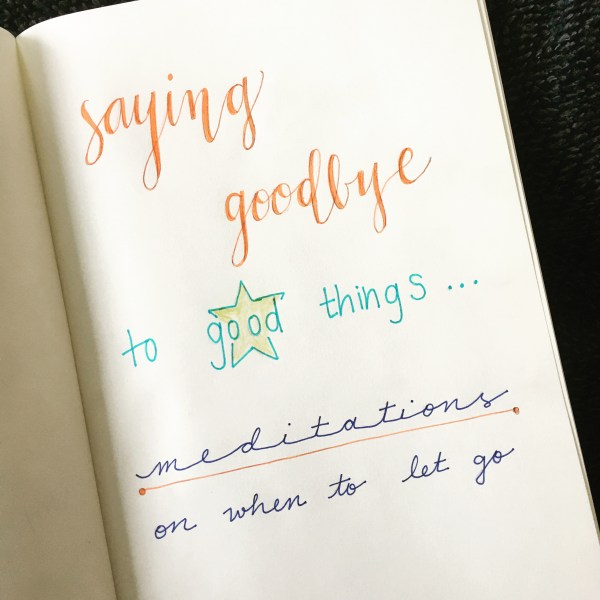 saying
goodbye
to good things...
meditations
on when to let go